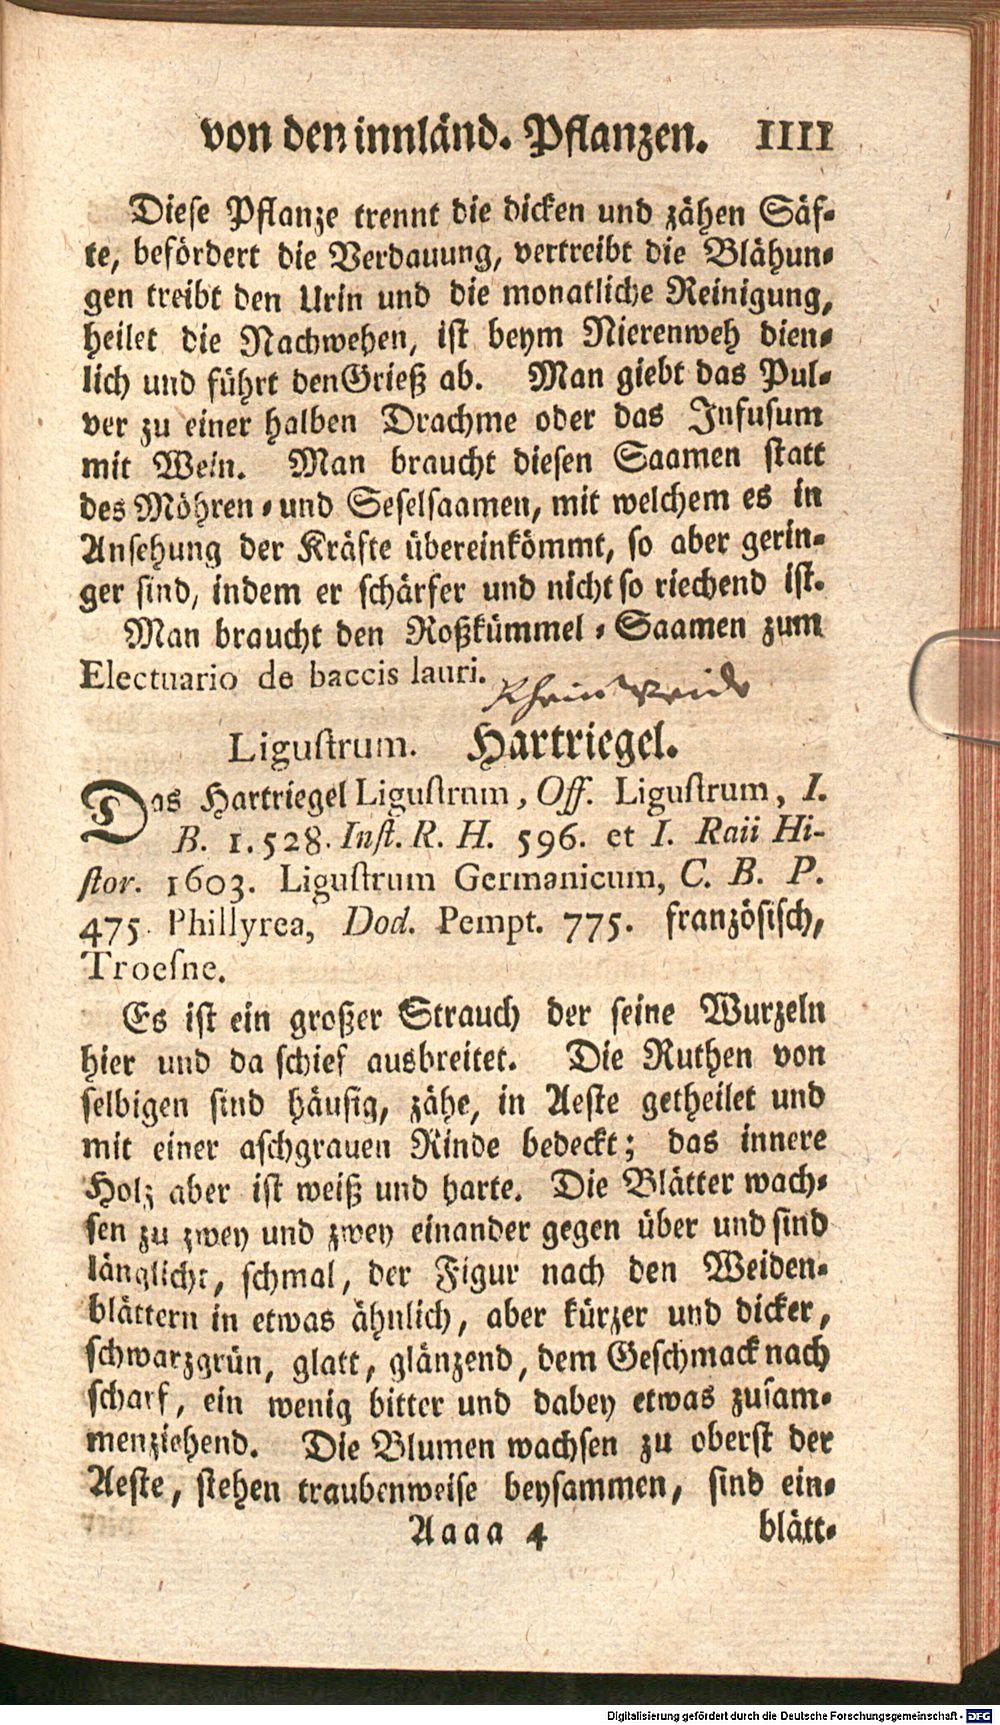 von den innländ. Pflanzen. 1111
Diese Pflanze trennt die dicken und zähen Säf-
te, befördert die Verdauung, vertreibt die Blähun-
gen treibt den Urin und die monatliche Reinigung,
heilet die Nachwehen, ist beym Nierenweh dien-
lich und führt den Grieß ab. Man giebt das Pul-
ver zu einer halben Drachme oder das Infusum
mit Wein. Man braucht diesen Saamen statt
des Möhren- und Seselsaamen, mit welchem es in
Ansehung der Kräfte übereinkömmt, so aber gerin-
ger sind, indem er schärfer und nicht so riechend ist.
Man braucht den Roßkümmel-Saamen zum
Electuario de baccis lauri.
Rhein Weide
Ligustrum. Hartriegel.
Das Hartriegel Ligustrum, Off. Ligustrum, I.
B. 1. 528. Inst. R. H. 596. et I. Raii Hi-
stor. 1603. Ligustrum Germanicum, C. B. P.
475. Phillyrea, Dod. Pempt. 775. französisch,
Troesne.
Es ist ein großer Strauch der seine Wurzeln
hier und da schief ausbreitet. Die Ruthen von
selbigen sind häufig, zähe, in Aeste getheilet und
mit einer aschgrauen Rinde bedeckt; das innere
Holz aber ist weiß und harte. Die Blätter wach-
sen zu zwey und zwey einander gegen über und sind
länglicht, schmal, der Figur nach den Weiden-
blättern in etwas ähnlich, aber kürzer und dicker,
schwarzgrün, glatt, glänzend, dem Geschmack nach
scharf, ein wenig bitter und dabey etwas zusam-
menziehend. Die Blumen wachsen zu oberst der
Aeste, stehen traubenweise beysammen, sind ein-
Aaaa 4 blätt-
Digitalisierung gefördert durch die Deutsche Forschungsgemeinschaft - DFG